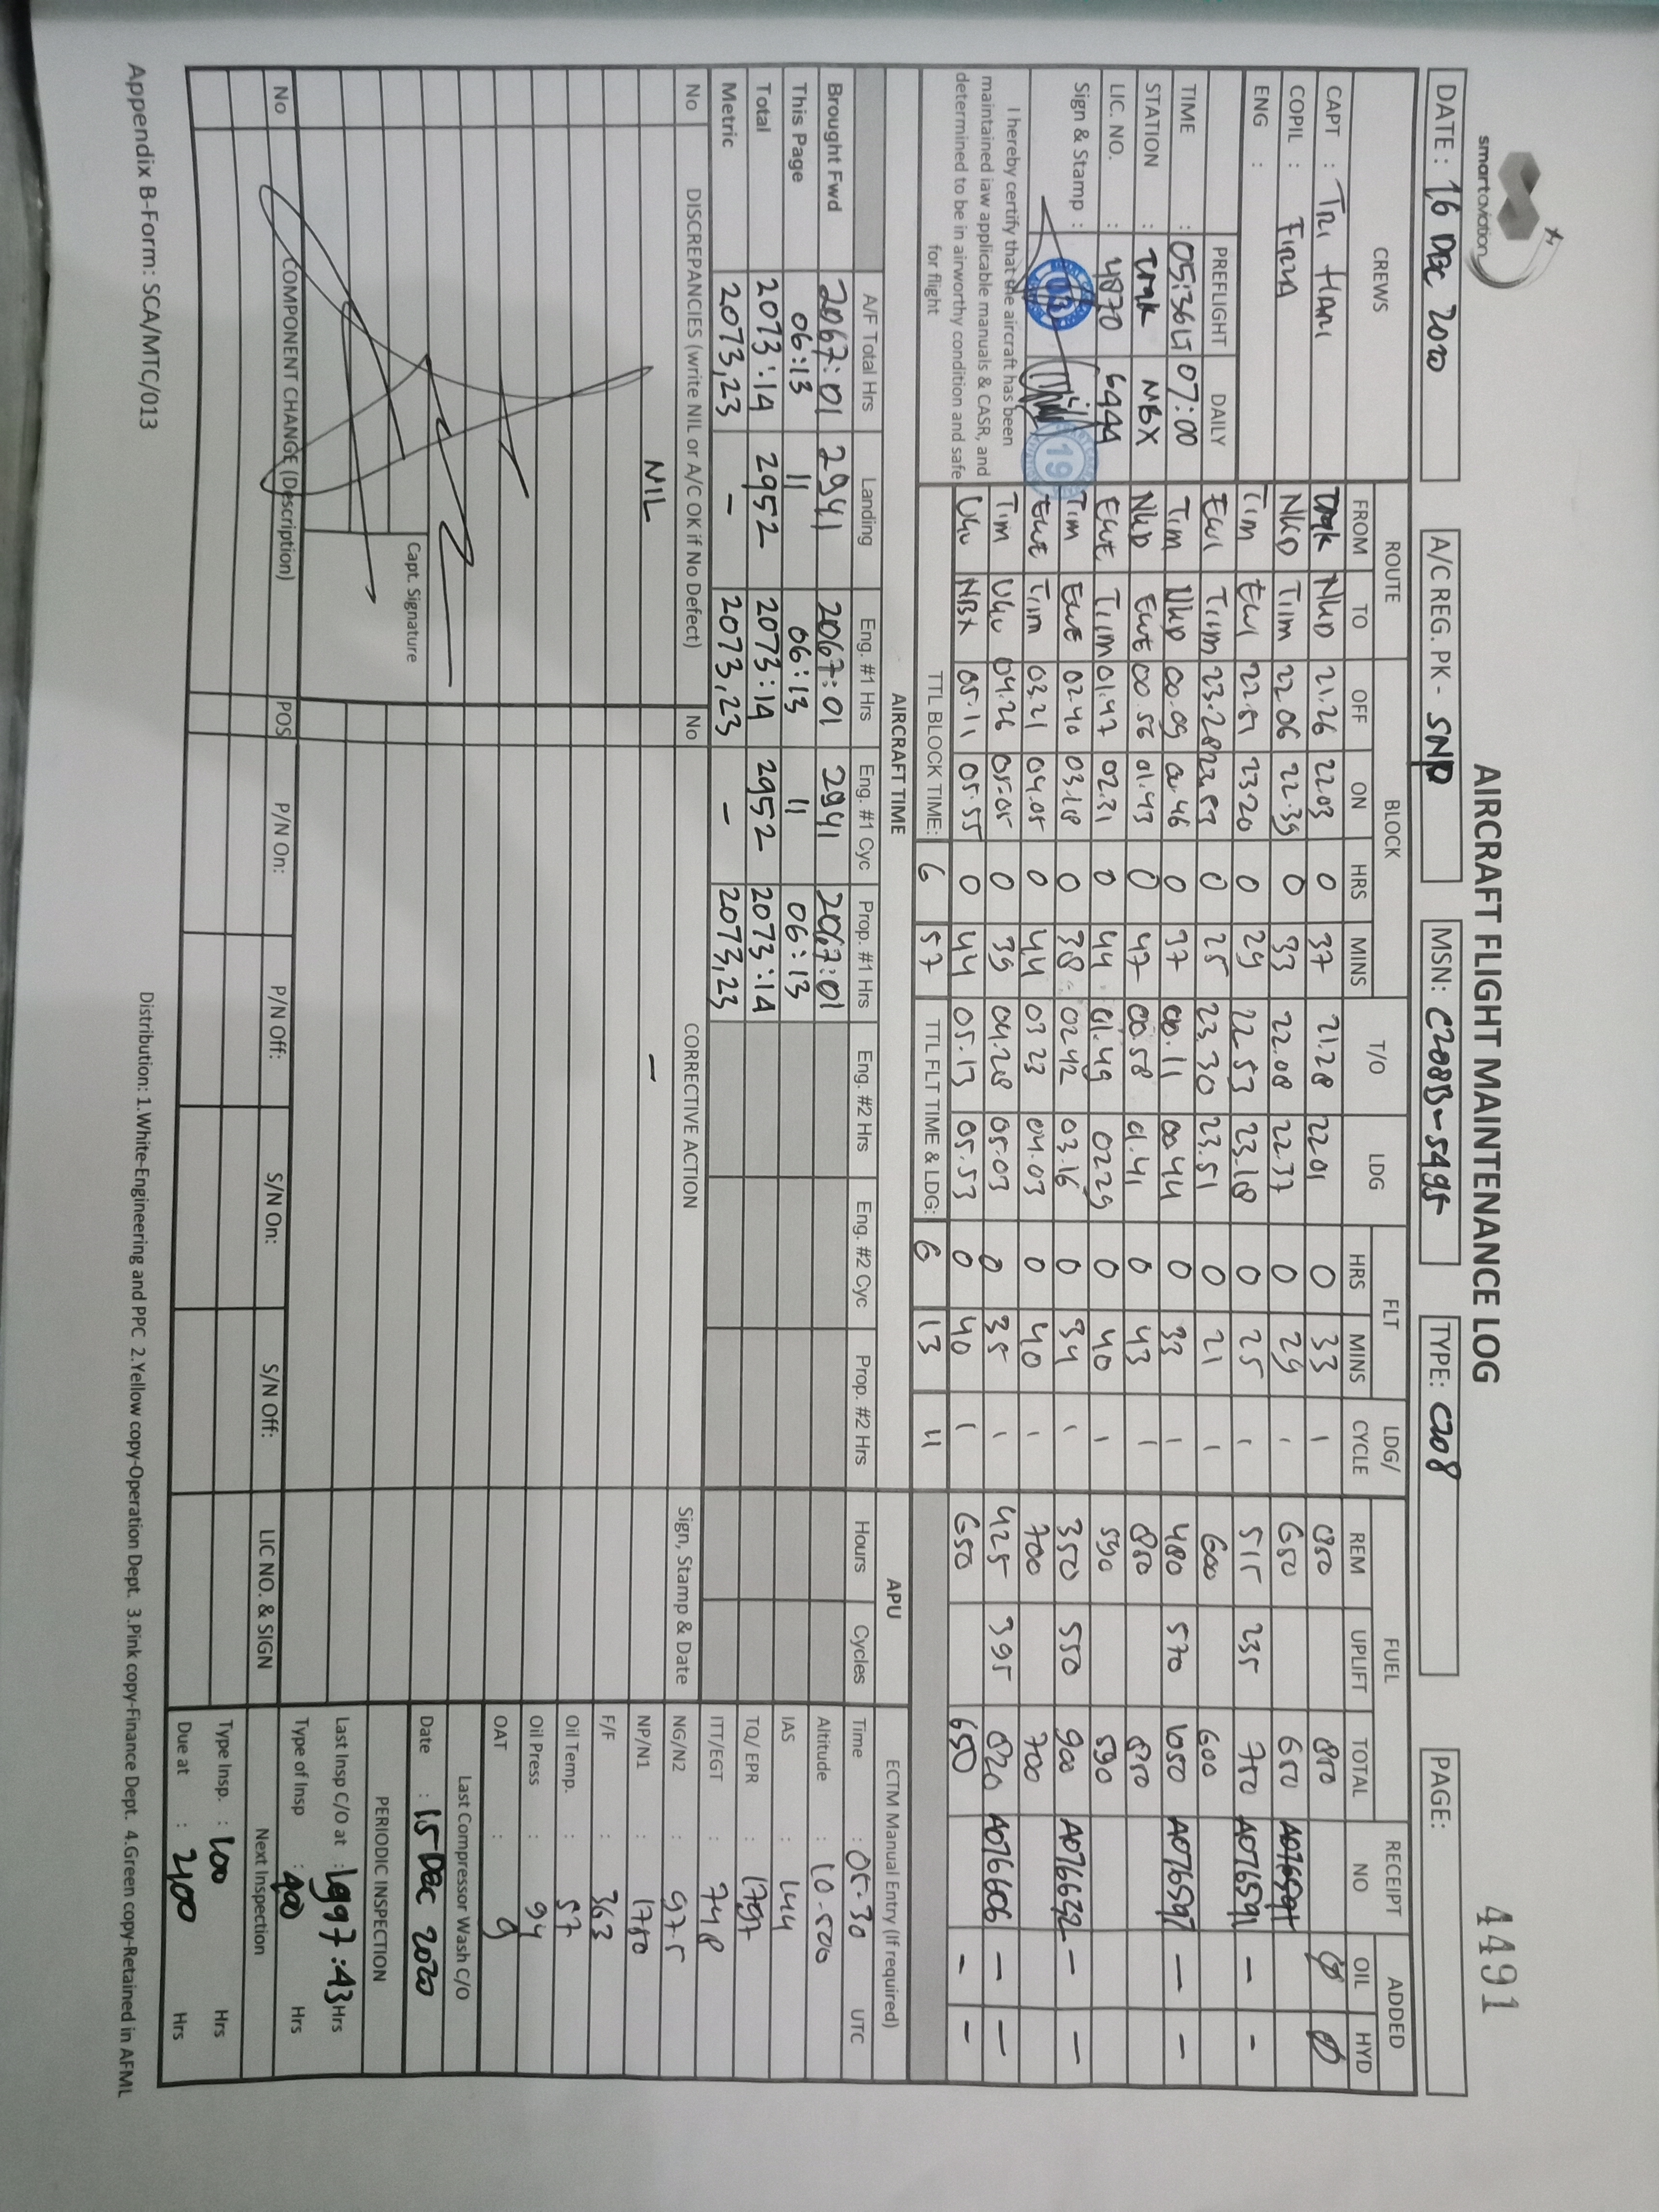 smartaviation
AIRCRAFT FLIGHT MAINTENANCE LOG
4491
DATE : 16 Dec 2020 A/C REG. PK - SNP MSN: C208B-5495 TYPE: C208 PAGE:
CREWS ROUTE BLOCK T/O LDG FLT LDG/ CYCLE FUEL RECEIPT NO ADDED
FROM TO OFF ON HRS MINS HRS MINS REM UPLIFT TOTAL OIL HYD
CAPT : Tri Hani TMK NKD 21.26 22.03 0 37 21.28 22.01 0 33 1 850 850 Ø Ø
COPIL : Firza NKD TIM 22.06 22.39 0 33 22.08 22.37 0 29 1 650 650
ENG : TIM EWI 22.51 23.20 0 29 22.53 23.18 0 25 1 515 235 750 A076591 - -
PREFLIGHT DAILY EWI TIM 23.28 23.53 0 25 23.30 23.51 0 21 1 600 600
TIME : 05:36LT 07:00 TIM NKD 00.09 00.46 0 37 00.11 00.44 0 33 1 480 570 1050 A076597 - -
STATION : TMK NBX NKD EWE 00.56 01.43 0 47 00.58 01.41 0 43 1 850 850
LIC. NO. : 4870 6944 EWE TIM 01.47 02.31 0 44 01.49 02.29 0 40 1 590 590
Sign & Stamp : TIM EWE 02.40 03.18 0 38 02.42 03.16 0 34 1 350 550 900 A076632 - -
EWE TIM 03.21 04.05 0 44 03 23 04.03 0 40 1 700 700
TIM UKU 04.26 05.05 0 39 04.28 05.03 0 35 1 425 395 820 A076606 - -
UKU NBX 05.11 05.55 0 44 05.13 05.53 0 40 1 650 650 - -
I hereby certify that the aircraft has been
maintained iaw applicable manuals & CASR, and
determined to be in airworthy condition and safe
for flight
TTL BLOCK TIME: 6 57 TTL FLT TIME & LDG: 6 13 11
AIRCRAFT TIME APU ECTM Manual Entry (If required)
A/F Total Hrs Landing Eng. #1 Hrs Eng. #1 Cyc Prop. #1 Hrs Eng. #2 Hrs Eng. #2 Cyc Prop. #2 Hrs Hours Cycles Time : 05.30 UTC
Brought Fwd 2067:01 2941 2067:01 2941 2067:01 Altitude : 10.500
This Page 06:13 11 06:13 11 06:13 IAS : 144
Total 2073:14 2952 2073:14 2952 2073:14 TQ/ EPR : 1797
Metric 2073,23 - 2073,23 - 2073,23 ITT/EGT : 748
No DISCREPANCIES (write NIL or A/C OK if No Defect) No CORRECTIVE ACTION Sign, Stamp & Date NG/N2 : 97.5
NIL - NP/N1 : 1750
F/F : 363
Oil Temp. : 57
Oil Press : 94
OAT : 9
Last Compressor Wash C/O
Capt. Signature Date : 15 Dec 2020
PERIODIC INSPECTION
Last Insp C/O at : 1997:43 Hrs
No COMPONENT CHANGE (Description) POS P/N On: P/N Off: S/N On: S/N Off: LIC NO. & SIGN Type of Insp : Hrs
Next Inspection
Type Insp. : Hrs
Due at : 2100 Hrs
Appendix B-Form: SCA/MTC/013
Distribution: 1.White-Engineering and PPC 2.Yellow copy-Operation Dept. 3.Pink copy-Finance Dept. 4.Green copy-Retained in AFML